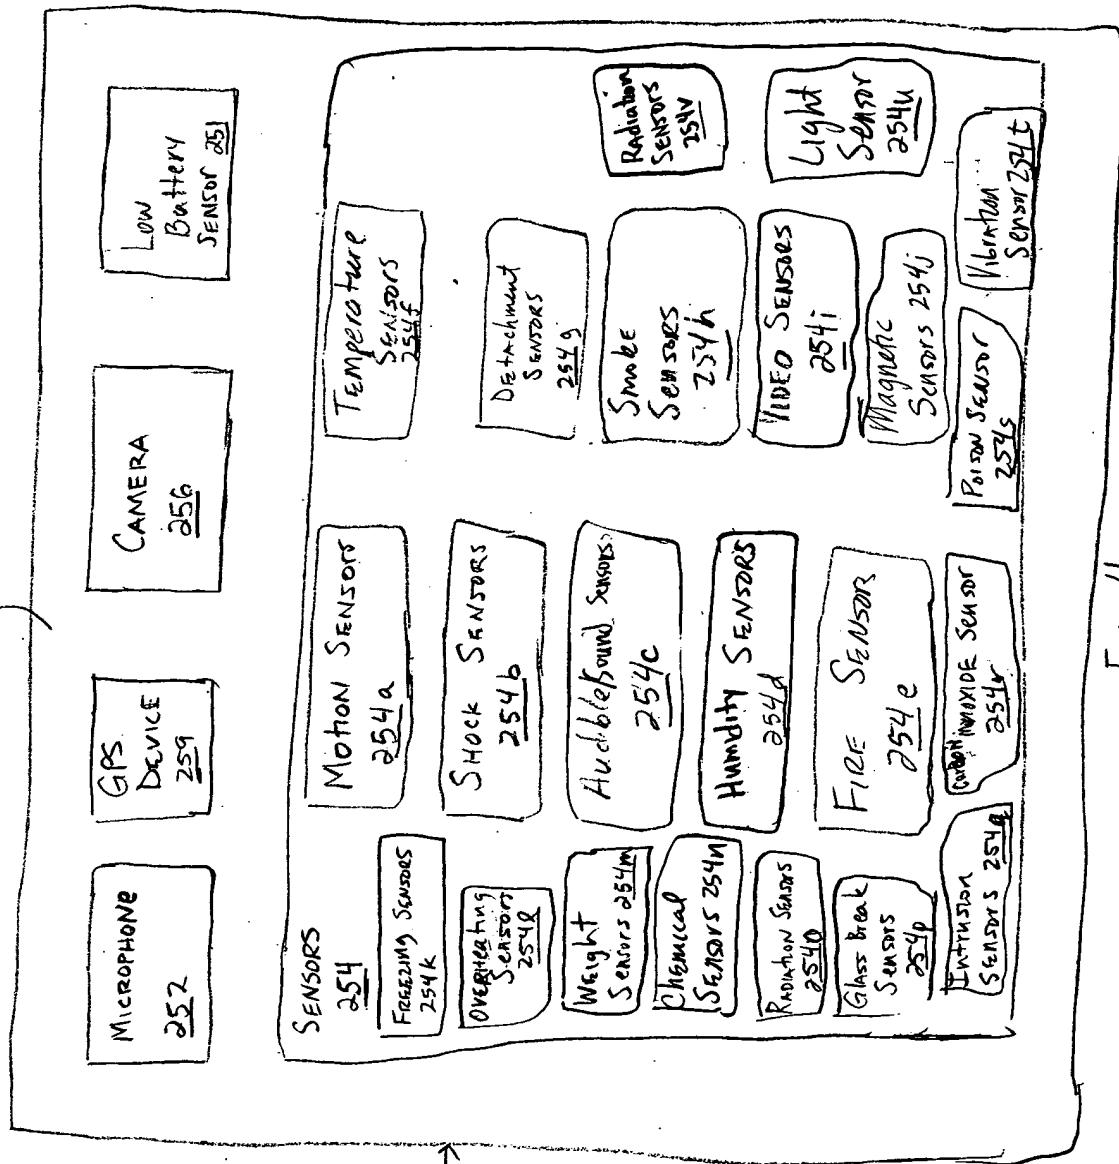 MICROPHONE
252
GPS
DEVICE
259
CAMERA
256
Low
Battery
SENSOR 251
SENSORS
254
FREEZING SENSORS
254k
OVERHEATING
Sensors
254l
WEIGHT
Sensors 254m
Chemical
SENSORS 254n
RADIATION SENSORS
254o
Glass Break
Sensors
254p
Intrusion
SENSORS 254q
MOTION SENSORS
254a
SHOCK SENSORS
254b
Audible/Sound Sensors
254c
Humidity SENSORS
254d
FIRE SENSOR
254e
CARBON MONOXIDE Sensor
254r
TEMPERATURE
SENSORS
254f
DETACHMENT
SENSORS
254g
Smoke
Sensors
254h
VIDEO SENSORS
254i
Magnetic
Sensors 254j
POISON SENSOR
254s
Radiation
SENSORS
254v
Light
Sensor
254u
Vibration
Sensor 254t